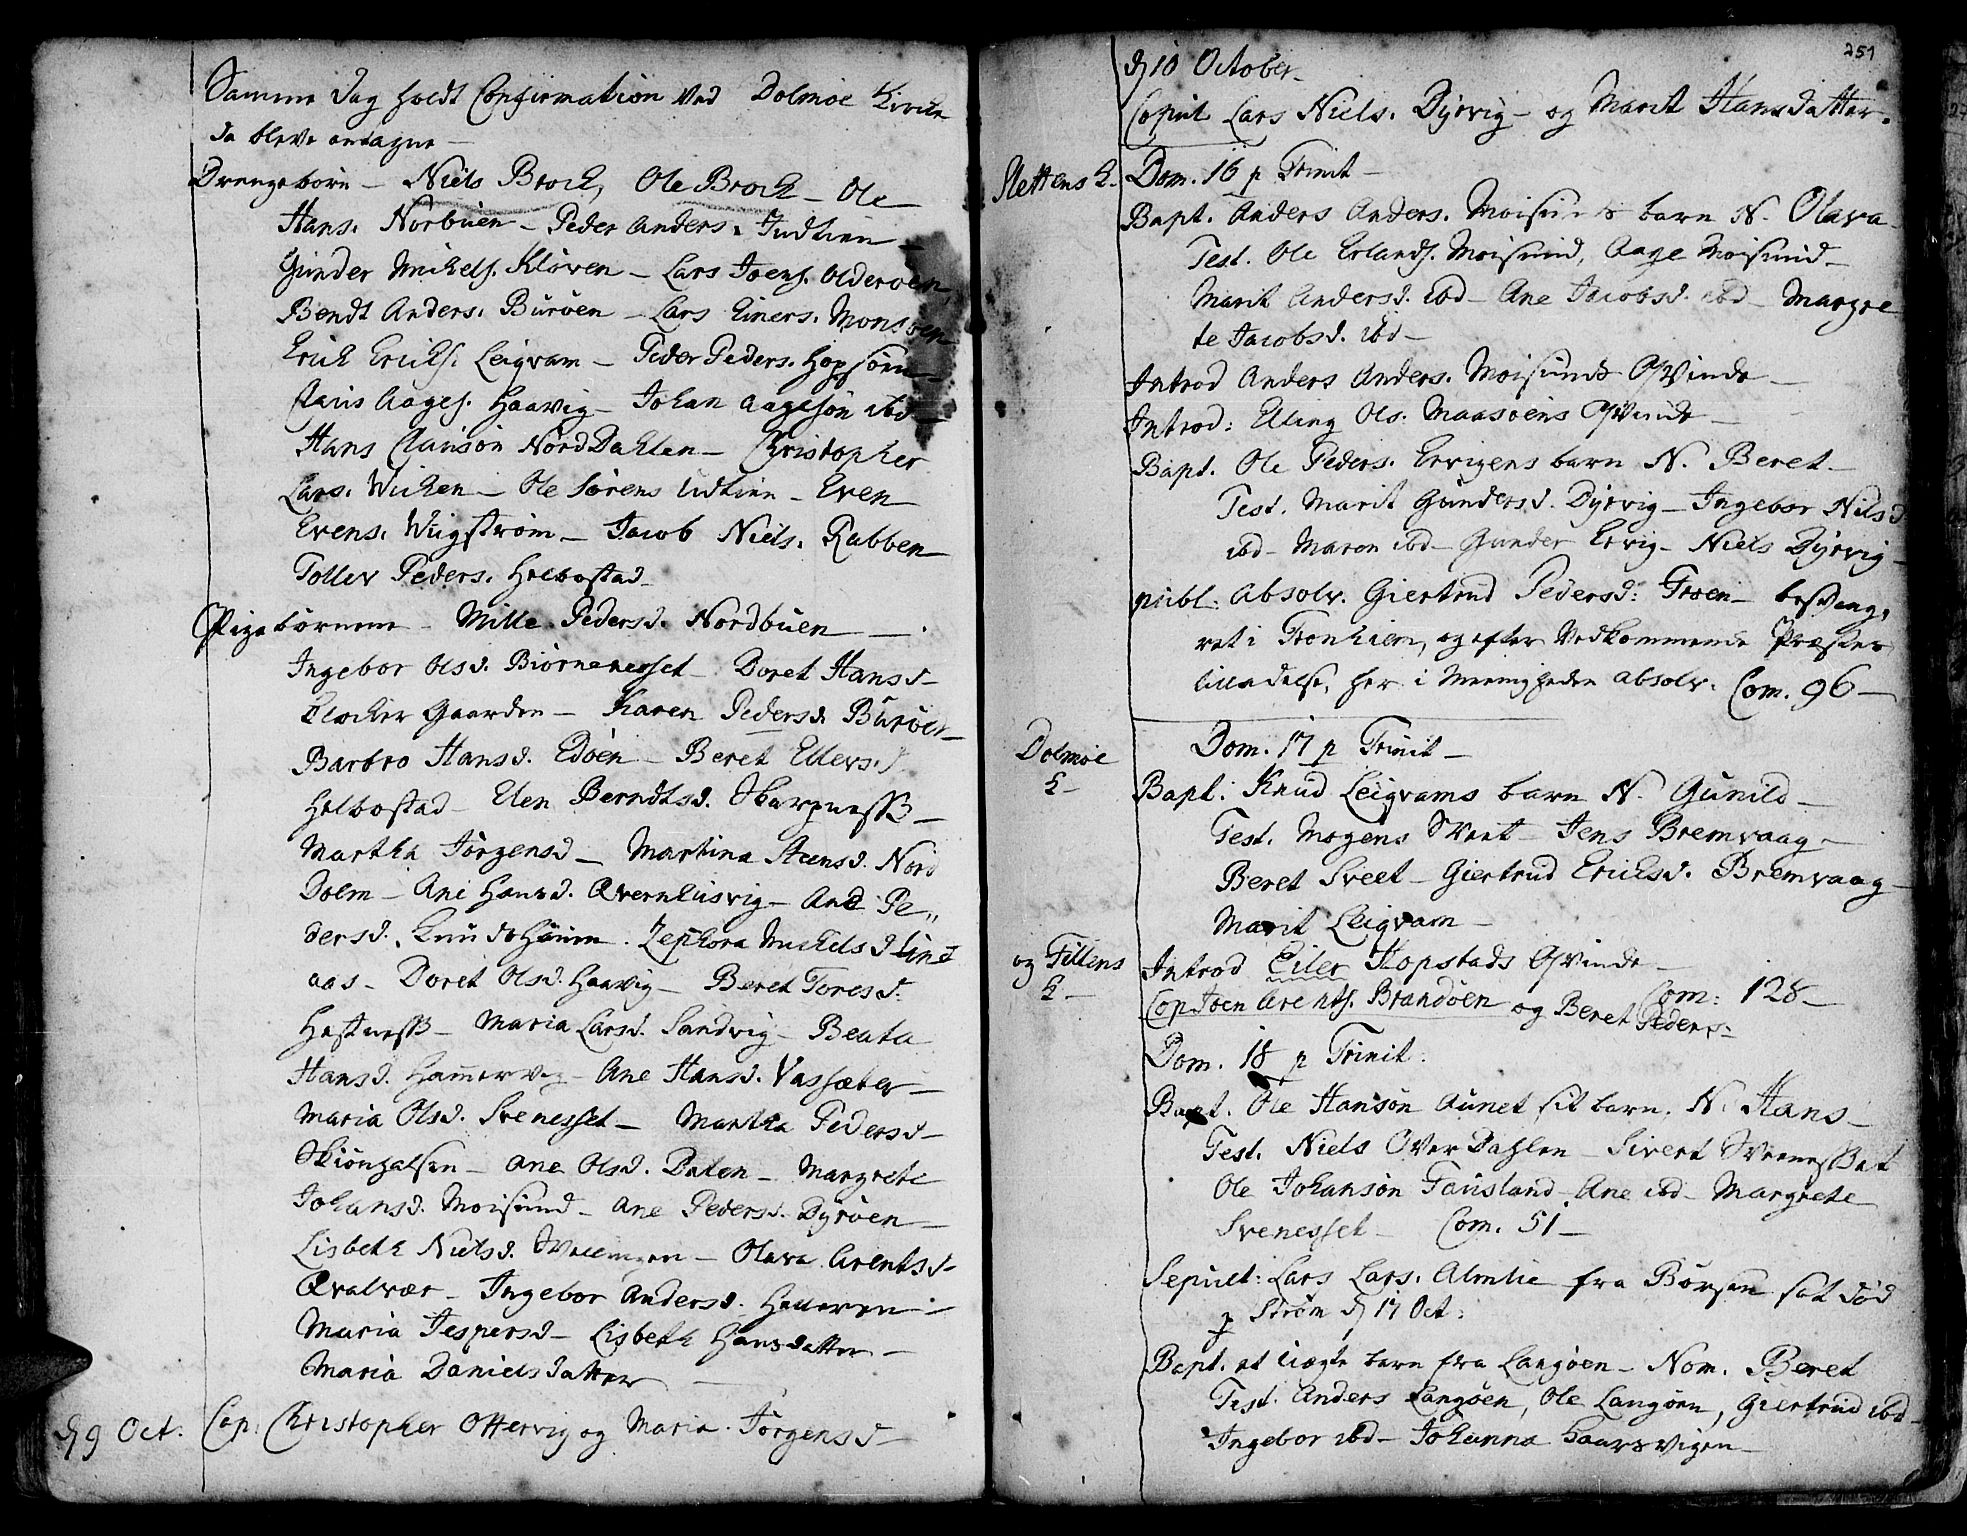 Samme Dag holdt Confirmation ved Dolmøe Kirche
da bleve antagne —
Drengebørn — Niels Broch, Ole Broch — Ole
Hans. Norbuen — Peder Anders. Indtien —
Gunder Michels. Kløven — Lars Joens. Olderøen,
Bendt Anders. Burøen — Lars Einers. Monsøen
Erich Erichs. Leigvam — Peder Peders. Hopsøen —
Claus Aages. Haavig — Johan Aagesøn ibd —
Hans Clausøn NordDahlen — Christopher
Lars. Wichen — Ole Sørens Udtien — Even
Evens. Wiigstrøm — Jacob Niels. Rabben
Tollev Peders. Helbostad —
Pigebørnene — Mille Pedersd. Nordbuen —
Ingebor Olsd. Biørnenesset — Doret Hansd —
Klocher Gaarden — Karen Pedersd. Burøen —
Barbro Hansd. Edøen — Beret Ellevsd
Helbostad — Elen Berndtsd. Skarpness —
Martha Jørgensd — Martina Steensd. Nord
Dolm — Ane Hansd. Qvernhusvig — Ane Pe„
dersd. Knudshaun. Zephora Michelsd Lind
aas — Doret Olsd. Haavig — Beret Toresd:
Hestness — Maria Larsd. Sandvig — Beata
Hansd. Hammervig — Ane Hansd. Vassæter —
Maria Olsd. Svenesset — Martha Pedersd —
Skiønhalsen — Ane Olsd. Dalen — Margrete
Johansd. Moisund — Ane Pedersd. Dyrøen —
Lisbeth Nielsd. — Olava Arentsd —
Qvalvær — Ingebor Andersd. Hallaren —
Maria Jespersd — Lisbeth Hansdatter —
Maria Danielsdatter —
d 9 Oct. Cop: Christopher Ottervig og Maria Jørgensd —
251
d 10 October —
Copul Lars Niels. Dyrvig — og Marit Hansdatter.
Slettens K. Dom. 16 p Trinit —
Bapt. Anders Anders. Moisunds barn N. Olava —
Test. Ole Erlands. Moisund, Aage Moisund —
Marit Andersd. ibd — Ane Jacobsd. ibd — Margre
te Jacobsd. ibd —
Introd Anders Anders. Moisunds Qvinde —
Introd: Elling Ols. Maasøens Qvinde —
Bapt. Ole Peders. Ervigens barn N. Beret —
Test. Marit Gundersd. Dyrvig — Ingebor Nilsd
ibd — Maren ibd — Gunder Ervig — Niels Dyrvig —
publ: Absolv. Giertrud Pedersd: Frøen — besvang„
ret i Tronhiem, og efter Vedkommende Præstes
tilladelse, her i Meenigheden absolv. Com. 96 —
Dolmøe
K —
Dom. 17 p Trinit —
Bapt: Knud Leigvams barn N. Gunild —
Test. Mogens Sveet — Jens Bremvaag —
Beret Sveet — Giertrud Erichsd. Bremvaag —
Marit Leigvam —
og Fillens
K —
Introd Eiler Hopstads Qvinde —
Com: 128 —
Cop Joen Arents. Brandøen og Beret Peders:
Dom. 18 p Trinit:
Bapt. Ole Hansøn Aunet sit barn. N. Hans —
Test. Niels OverDahlen — Sivert Svenesset
Ole Johansøn Fausland — Ane ibd — Margrete
Svenesset — Com. 51 —
Sepult: Lars Lars. Almlie fra Børsen sat død
p Strøm d 17 Oct:
Bapt. et Uægte barn fra Langøen — Nom. Beret
Test. Anders Langøen, Ole Langøen, Giertrud ibd —
Ingebor ibd — Johanna Haarsvigen —